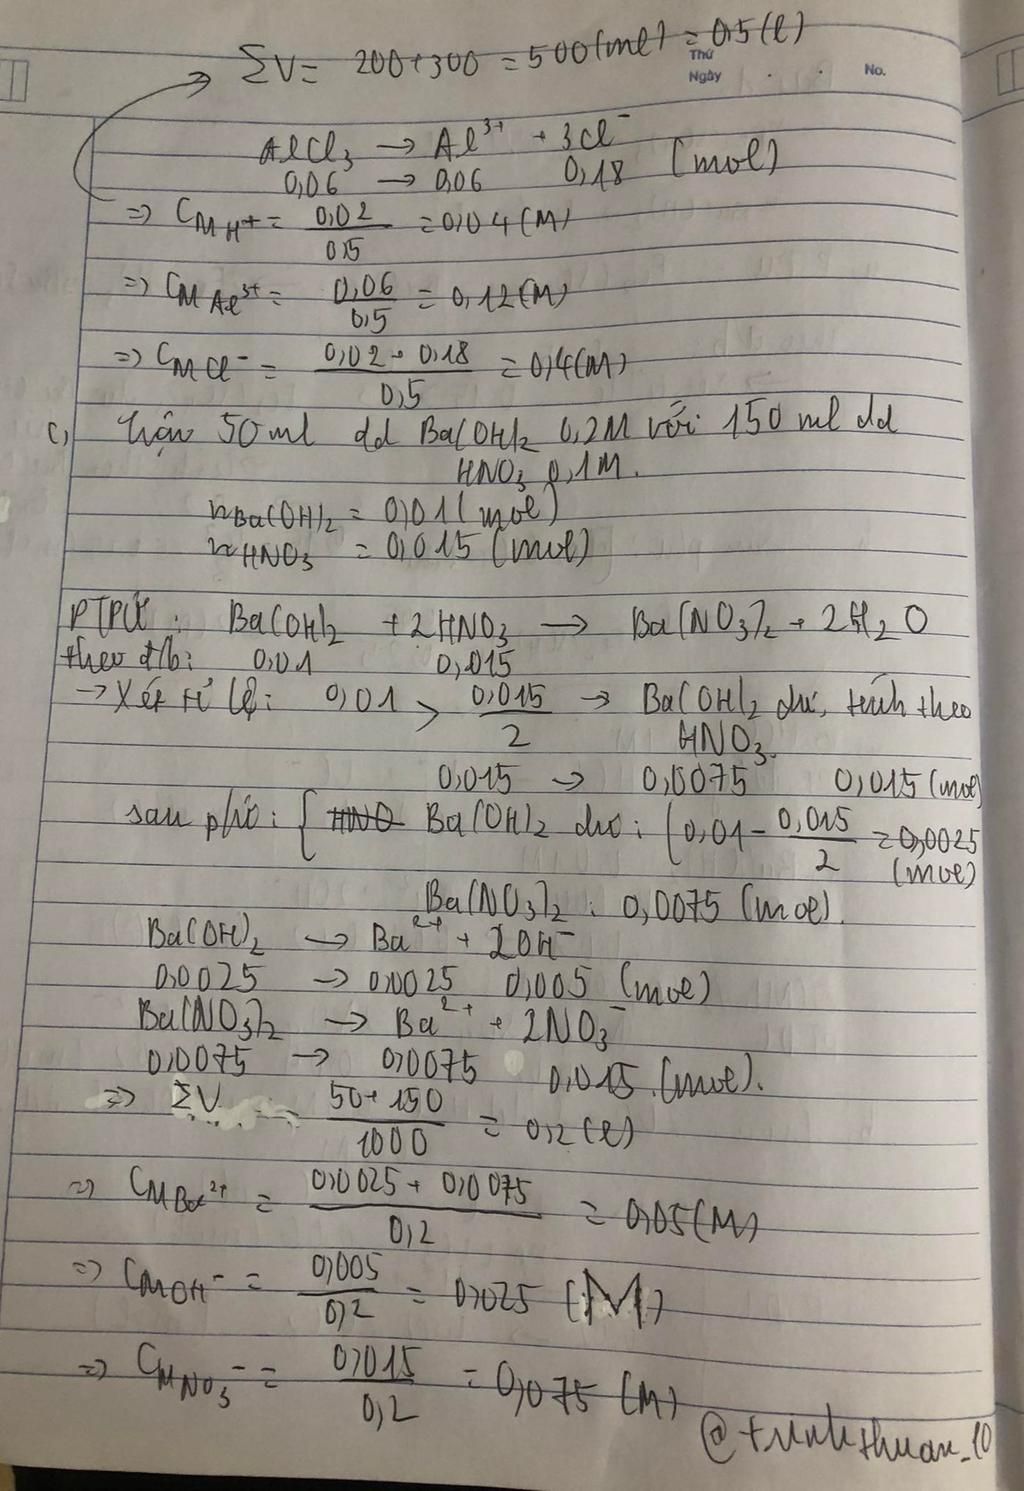 ΣV = 200+300 = 500(ml) = 0,5(l)
Thứ
Ngày . . No.
AlCl3 → Al³⁺ + 3Cl⁻
0,06 → 0,06 0,18 (mol)
=> CM H⁺ = 0,02/0,5 = 0,04(M)
=> CM Al³⁺ = 0,06/0,5 = 0,12(M)
=> CM Cl⁻ = 0,02+0,18/0,5 = 0,4(M)
c, trộn 50ml dd Ba(OH)2 0,2M với 150ml dd
HNO3 0,1M.
nBa(OH)2 = 0,01(mol)
nHNO3 = 0,015(mol)
PTPỨ: Ba(OH)2 + 2HNO3 → Ba(NO3)2 + 2H2O
theo đb: 0,01 0,015
→ Xét tỉ lệ: 0,01 > 0,015/2 → Ba(OH)2 dư, tính theo
HNO3.
0,015 → 0,0075 0,015(mol)
sau pứ: { HNO Ba(OH)2 dư: (0,01 - 0,015/2 = 0,0025
(mol)
Ba(NO3)2: 0,0075(mol).
Ba(OH)2 → Ba²⁺ + 2OH⁻
0,0025 → 0,0025 0,005 (mol)
Ba(NO3)2 → Ba²⁺ + 2NO3⁻
0,0075 → 0,0075 0,015 (mol).
=> ΣV = 50+150/1000 = 0,2(l)
=> CM Ba²⁺ = 0,0025+0,0075/0,2 = 0,05(M)
=> CM OH⁻ = 0,005/0,2 = 0,025 (M)
=> CM NO3⁻ = 0,015/0,2 = 0,075 (M)
@trinhthuan_10